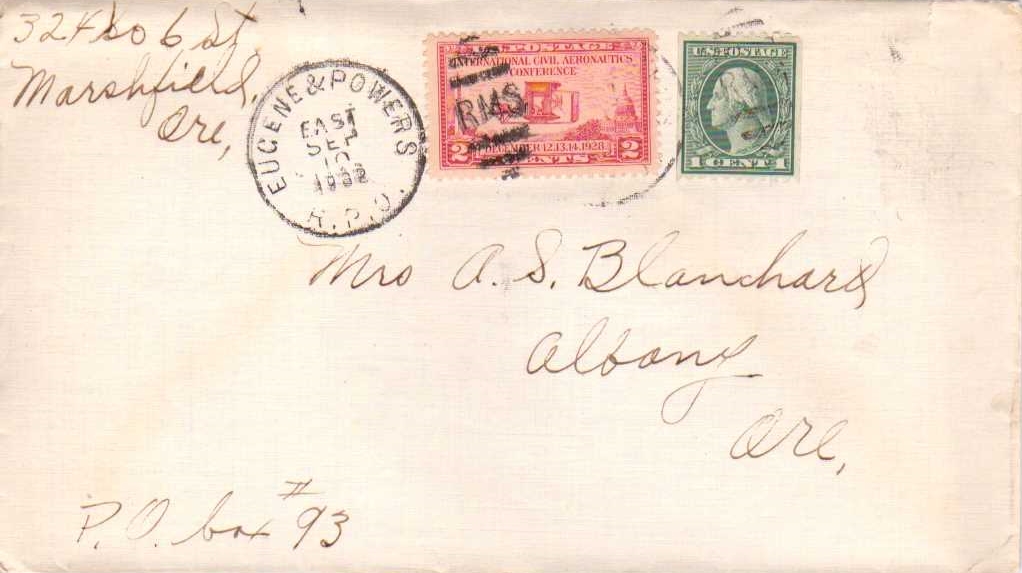 324 So 6 St
Marshfield,
Ore,
EUGENE & POWERS
EAST
SEP
10
1932
R.P.O.
U.S. POSTAGE
INTERNATIONAL CIVIL AERONAUTICS
CONFERENCE
RMS
DECEMBER 12.13.14.1928
2 CENTS 2
U.S. POSTAGE
1 CENT 1
Mrs A. S. Blanchard
Albany
Ore,
P.O. box #93